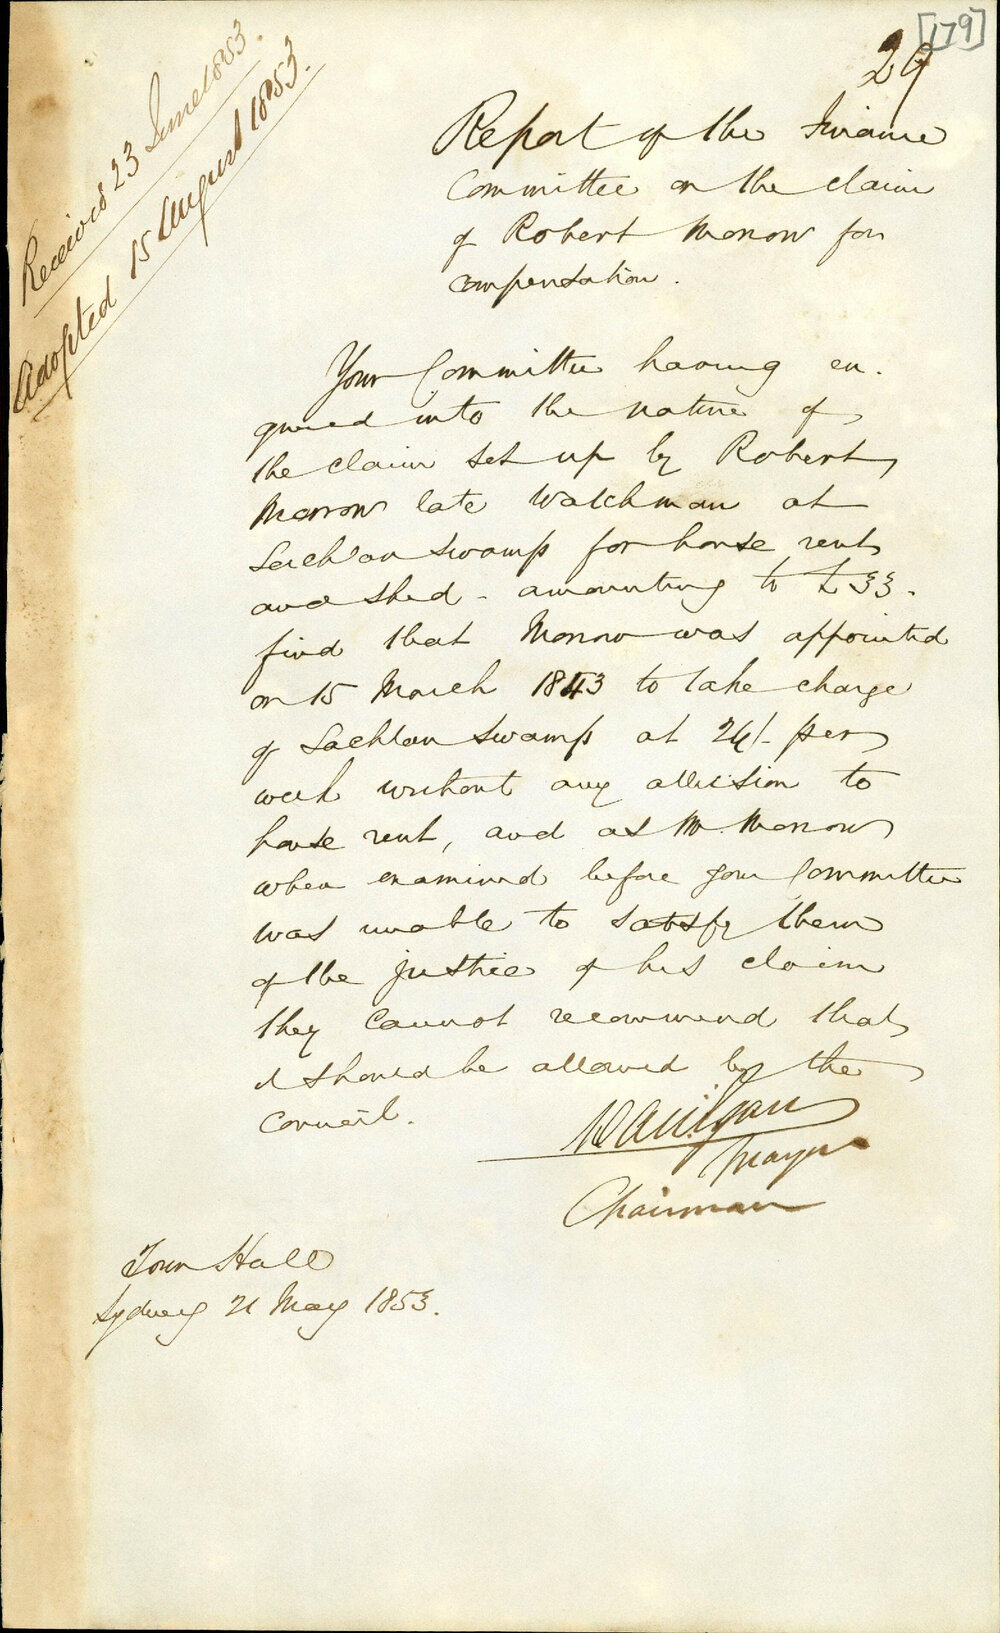 [179]
29
Received 23 June 1853.
Adopted 15 August 1853.
Report of the Finance
Committee on the claim
of Robert Morrow for
compensation.
Your Committee having en-
quired into the nature of
the claim set up by Robert
Morrow late Watchman at
Lachlan Swamp for house rent
and shed - amounting to £33.
find that Morrow was appointed
on 15 March 1843 to take charge
of Lachlan Swamp at 24/- per
week without any allusion to
house rent, and as Mr Morrow
when examined before your Committee
was unable to satisfy them
of the justice of his claim
they cannot recommend that
it should be allowed by the
Council.
Mayor
Chairman
Town Hall
Sydney 21 May 1853.